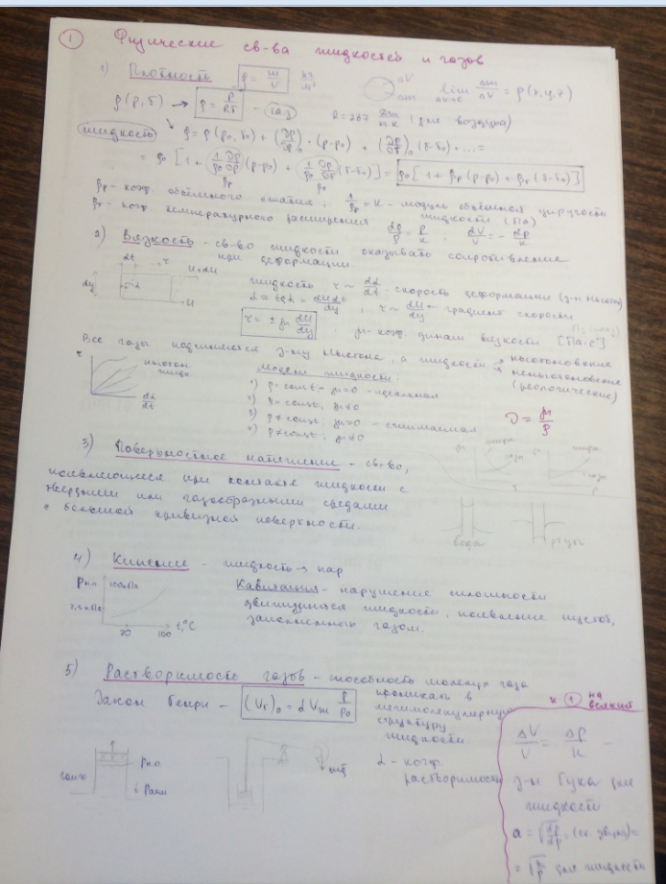 ① Физические св-ва жидкостей и газов
1) Плотность ρ = m/V кг/м³ ΔV Δm lim ΔV→0 Δm/ΔV = ρ(x,y,z)
ρ(p,T) → ρ = p/RT - (газ) R = 287 Дж/кг·К (для воздуха)
жидкость ρ = ρ(p₀,T₀) + (∂ρ/∂p)₀·(p-p₀) + (∂ρ/∂T)₀(T-T₀) + ... =
= ρ₀[1 + (1/ρ₀ ∂ρ/∂p)(p-p₀) + (1/ρ₀ ∂ρ/∂T)(T-T₀)] = ρ₀[1 + βp(p-p₀) + βT(T-T₀)]
βp - коэф. объемного сжатия; 1/βp = K - модуль объёмной упругости
жидкости (Па)
βT - коэф. температурного расширения dρ/ρ = dp/K; dV/V = - dp/K
2) Вязкость - св-во жидкости оказывать сопротивление
при деформации
жидкость τ ~ dα/dt - скорость деформации (з-н Ньютона)
dy dα U+dU U
τ ~ dU/dy ← градиент скорости
τ = ± μ dU/dy; μ - коэф. динам вязкости [Па·с]
Все газы подчиняются з-ну Ньютона, а жидкости → ньютоновские
→ неньютоновские
(реологические)
τ ньютон. жидк. dα/dt
Модели жидкости.
1) ρ = const; μ=0 - идеальная
2) ρ = const; μ≠0
3) ρ ≠ const; μ=0 - сжимаемая
4) ρ ≠ const; μ≠0
ν = μ/ρ
3) Поверхностное натяжение - св-во,
появляющееся при контакте жидкости с
твердыми или газообразными средами
с большой кривизной поверхности.
вода ртуть
4) Кипение - жидкость → пар
Pн.п. 100кПа 20 100 t,°C
Кавитация - нарушение сплошности
движущейся жидкости, появление пустот,
заполненных газом.
5) Растворимость газов - способность молекул газа
проникать в
межмолекулярную
структуру
жидкости
Закон Генри - (Vг)₀ = αVж p/p₀
α - коэф.
растворимости
Pн.п. Pатм
к ① на всякий
ΔV/V = Δp/K -
з-н Гука для
жидкости
a = √(dp/dρ) - (ск. звука) =
= √(K/ρ) для жидкости